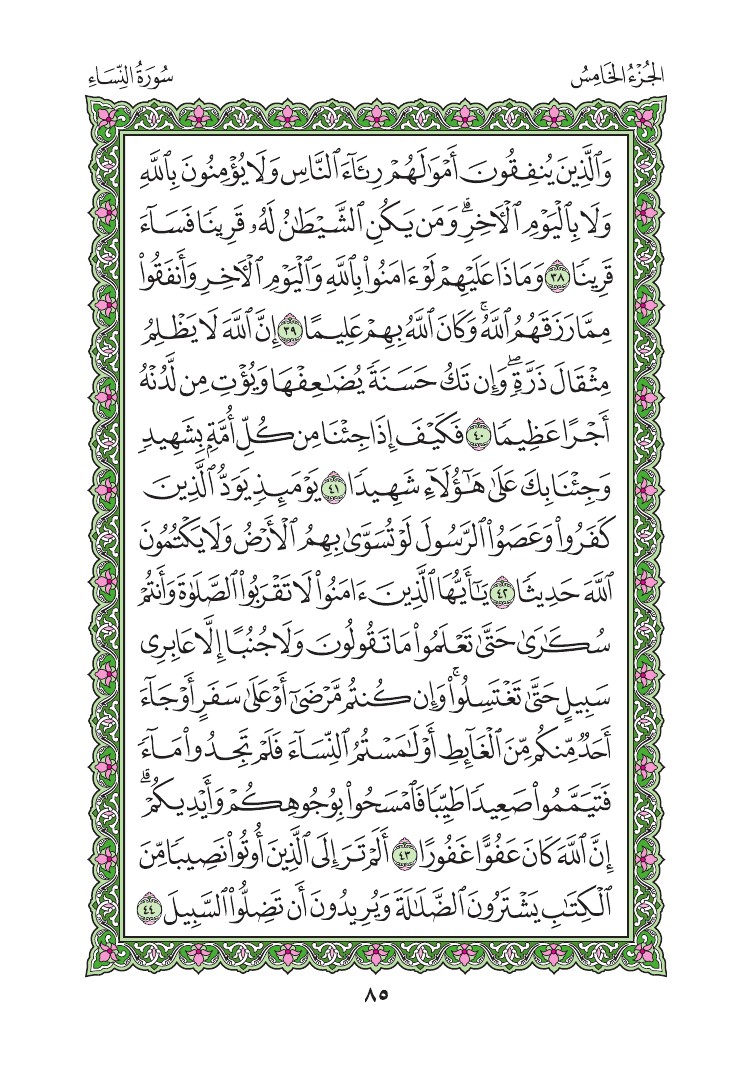 الجزء الخامس
سورة النساء
وَٱلَّذِينَ يُنفِقُونَ أَمْوَٰلَهُمْ رِئَآءَ ٱلنَّاسِ وَلَا يُؤْمِنُونَ بِٱللَّهِ
وَلَا بِٱلْيَوْمِ ٱلْـَٔاخِرِۗ وَمَن يَكُنِ ٱلشَّيْطَٰنُ لَهُۥ قَرِينًا فَسَآءَ
قَرِينًا ٣٨ وَمَاذَا عَلَيْهِمْ لَوْ ءَامَنُوا۟ بِٱللَّهِ وَٱلْيَوْمِ ٱلْـَٔاخِرِ وَأَنفَقُوا۟
مِمَّا رَزَقَهُمُ ٱللَّهُۚ وَكَانَ ٱللَّهُ بِهِمْ عَلِيمًا ٣٩ إِنَّ ٱللَّهَ لَا يَظْلِمُ
مِثْقَالَ ذَرَّةٍۖ وَإِن تَكُ حَسَنَةً يُضَٰعِفْهَا وَيُؤْتِ مِن لَّدُنْهُ
أَجْرًا عَظِيمًا ٤٠ فَكَيْفَ إِذَا جِئْنَا مِن كُلِّ أُمَّةٍۭ بِشَهِيدٍ
وَجِئْنَا بِكَ عَلَىٰ هَٰٓؤُلَآءِ شَهِيدًا ٤١ يَوْمَئِذٍ يَوَدُّ ٱلَّذِينَ
كَفَرُوا۟ وَعَصَوُا۟ ٱلرَّسُولَ لَوْ تُسَوَّىٰ بِهِمُ ٱلْأَرْضُ وَلَا يَكْتُمُونَ
ٱللَّهَ حَدِيثًا ٤٢ يَٰٓأَيُّهَا ٱلَّذِينَ ءَامَنُوا۟ لَا تَقْرَبُوا۟ ٱلصَّلَوٰةَ وَأَنتُمْ
سُكَٰرَىٰ حَتَّىٰ تَعْلَمُوا۟ مَا تَقُولُونَ وَلَا جُنُبًا إِلَّا عَابِرِى
سَبِيلٍ حَتَّىٰ تَغْتَسِلُوا۟ۚ وَإِن كُنتُم مَّرْضَىٰٓ أَوْ عَلَىٰ سَفَرٍ أَوْ جَآءَ
أَحَدٌ مِّنكُم مِّنَ ٱلْغَآئِطِ أَوْ لَٰمَسْتُمُ ٱلنِّسَآءَ فَلَمْ تَجِدُوا۟ مَآءً
فَتَيَمَّمُوا۟ صَعِيدًا طَيِّبًا فَٱمْسَحُوا۟ بِوُجُوهِكُمْ وَأَيْدِيكُمْۗ
إِنَّ ٱللَّهَ كَانَ عَفُوًّا غَفُورًا ٤٣ أَلَمْ تَرَ إِلَى ٱلَّذِينَ أُوتُوا۟ نَصِيبًا مِّنَ
ٱلْكِتَٰبِ يَشْتَرُونَ ٱلضَّلَٰلَةَ وَيُرِيدُونَ أَن تَضِلُّوا۟ ٱلسَّبِيلَ ٤٤
٨٥